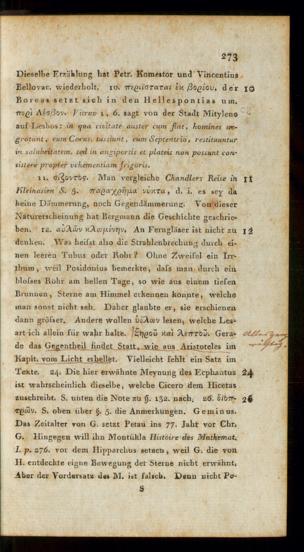 273
Dieselbe Erzählung hat Petr. Komestor und Vincentius
Bellovac. wiederholt. 10. περιίσταται ἐκ βορίου, der 10
Boreas setzt sich in den Hellespontias um.
περὶ Λέσβον. Vitruv 1, 6. sagt von der Stadt Mitylene
auf Lesbos: in qua civitate auster cum flat, homines ae-
grotant, cum Corus, tussiunt, cum Septentrio, restituuntur
in salubritatem, sed in angiportis et plateis non possunt con-
sistere propter vehementiam frigoris.
11. σίζοντος. Man vergleiche Chandlers Reise in 11
Kleinasien S. 5. παραχρῆμα νύκτα, d. i. es sey da
keine Dämmerung, noch Gegendämmerung. Von dieser
Naturerscheinung hat Bergmann die Geschichte geschrie-
ben. 12. αὐλῶν κλωμίνην. An Ferngläser ist nicht zu 12
denken. Was heisst also die Strahlenbrechung durch ei-
nen leeren Tubus oder Rohr? Ohne Zweifel ein Irr-
thum, weil Posidonius bemerkte, dass man durch ein
blosses Rohr am hellen Tage, so wie aus einem tiefen
Brunnen, Sterne am Himmel erkennen könnte, welche
man sonst nicht seh. Daher glaubte er, sie erschienen
dann grösser. Andere wollen ὑάλων lesen, welche Les-
art ich allein für wahr halte. Ξηροῦ καὶ λεπτοῦ. Gera-
de das Gegentheil findet Statt, wie aus Aristoteles im
Kapit. vom Licht erhellet. Vielleicht fehlt ein Satz im
Texte. 24. Die hier erwähnte Meynung des Ecphantus 24
ist wahrscheinlich dieselbe, welche Cicero dem Hicetas
zuschreibt. S. unten die Note zu §. 132. nach. 26. διοπ- 26
τρῶν. S. oben über §. 5. die Anmerkungen. Geminus.
Das Zeitalter von G. setzt Petau ins 77. Jahr vor Chr.
G. Hingegen will ihn Montükla Histoire des Mathemat.
I. p. 276. vor dem Hipparchus setzen, weil G. die von
H. entdeckte eigne Bewegung der Sterne nicht erwähnt.
Aber der Vordersatz des M. ist falsch. Denn nicht Po-
S